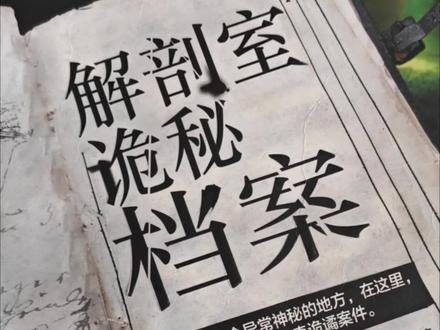 解剖室
诡秘
档案
异常神秘的地方，在这里，
诡谲案件。